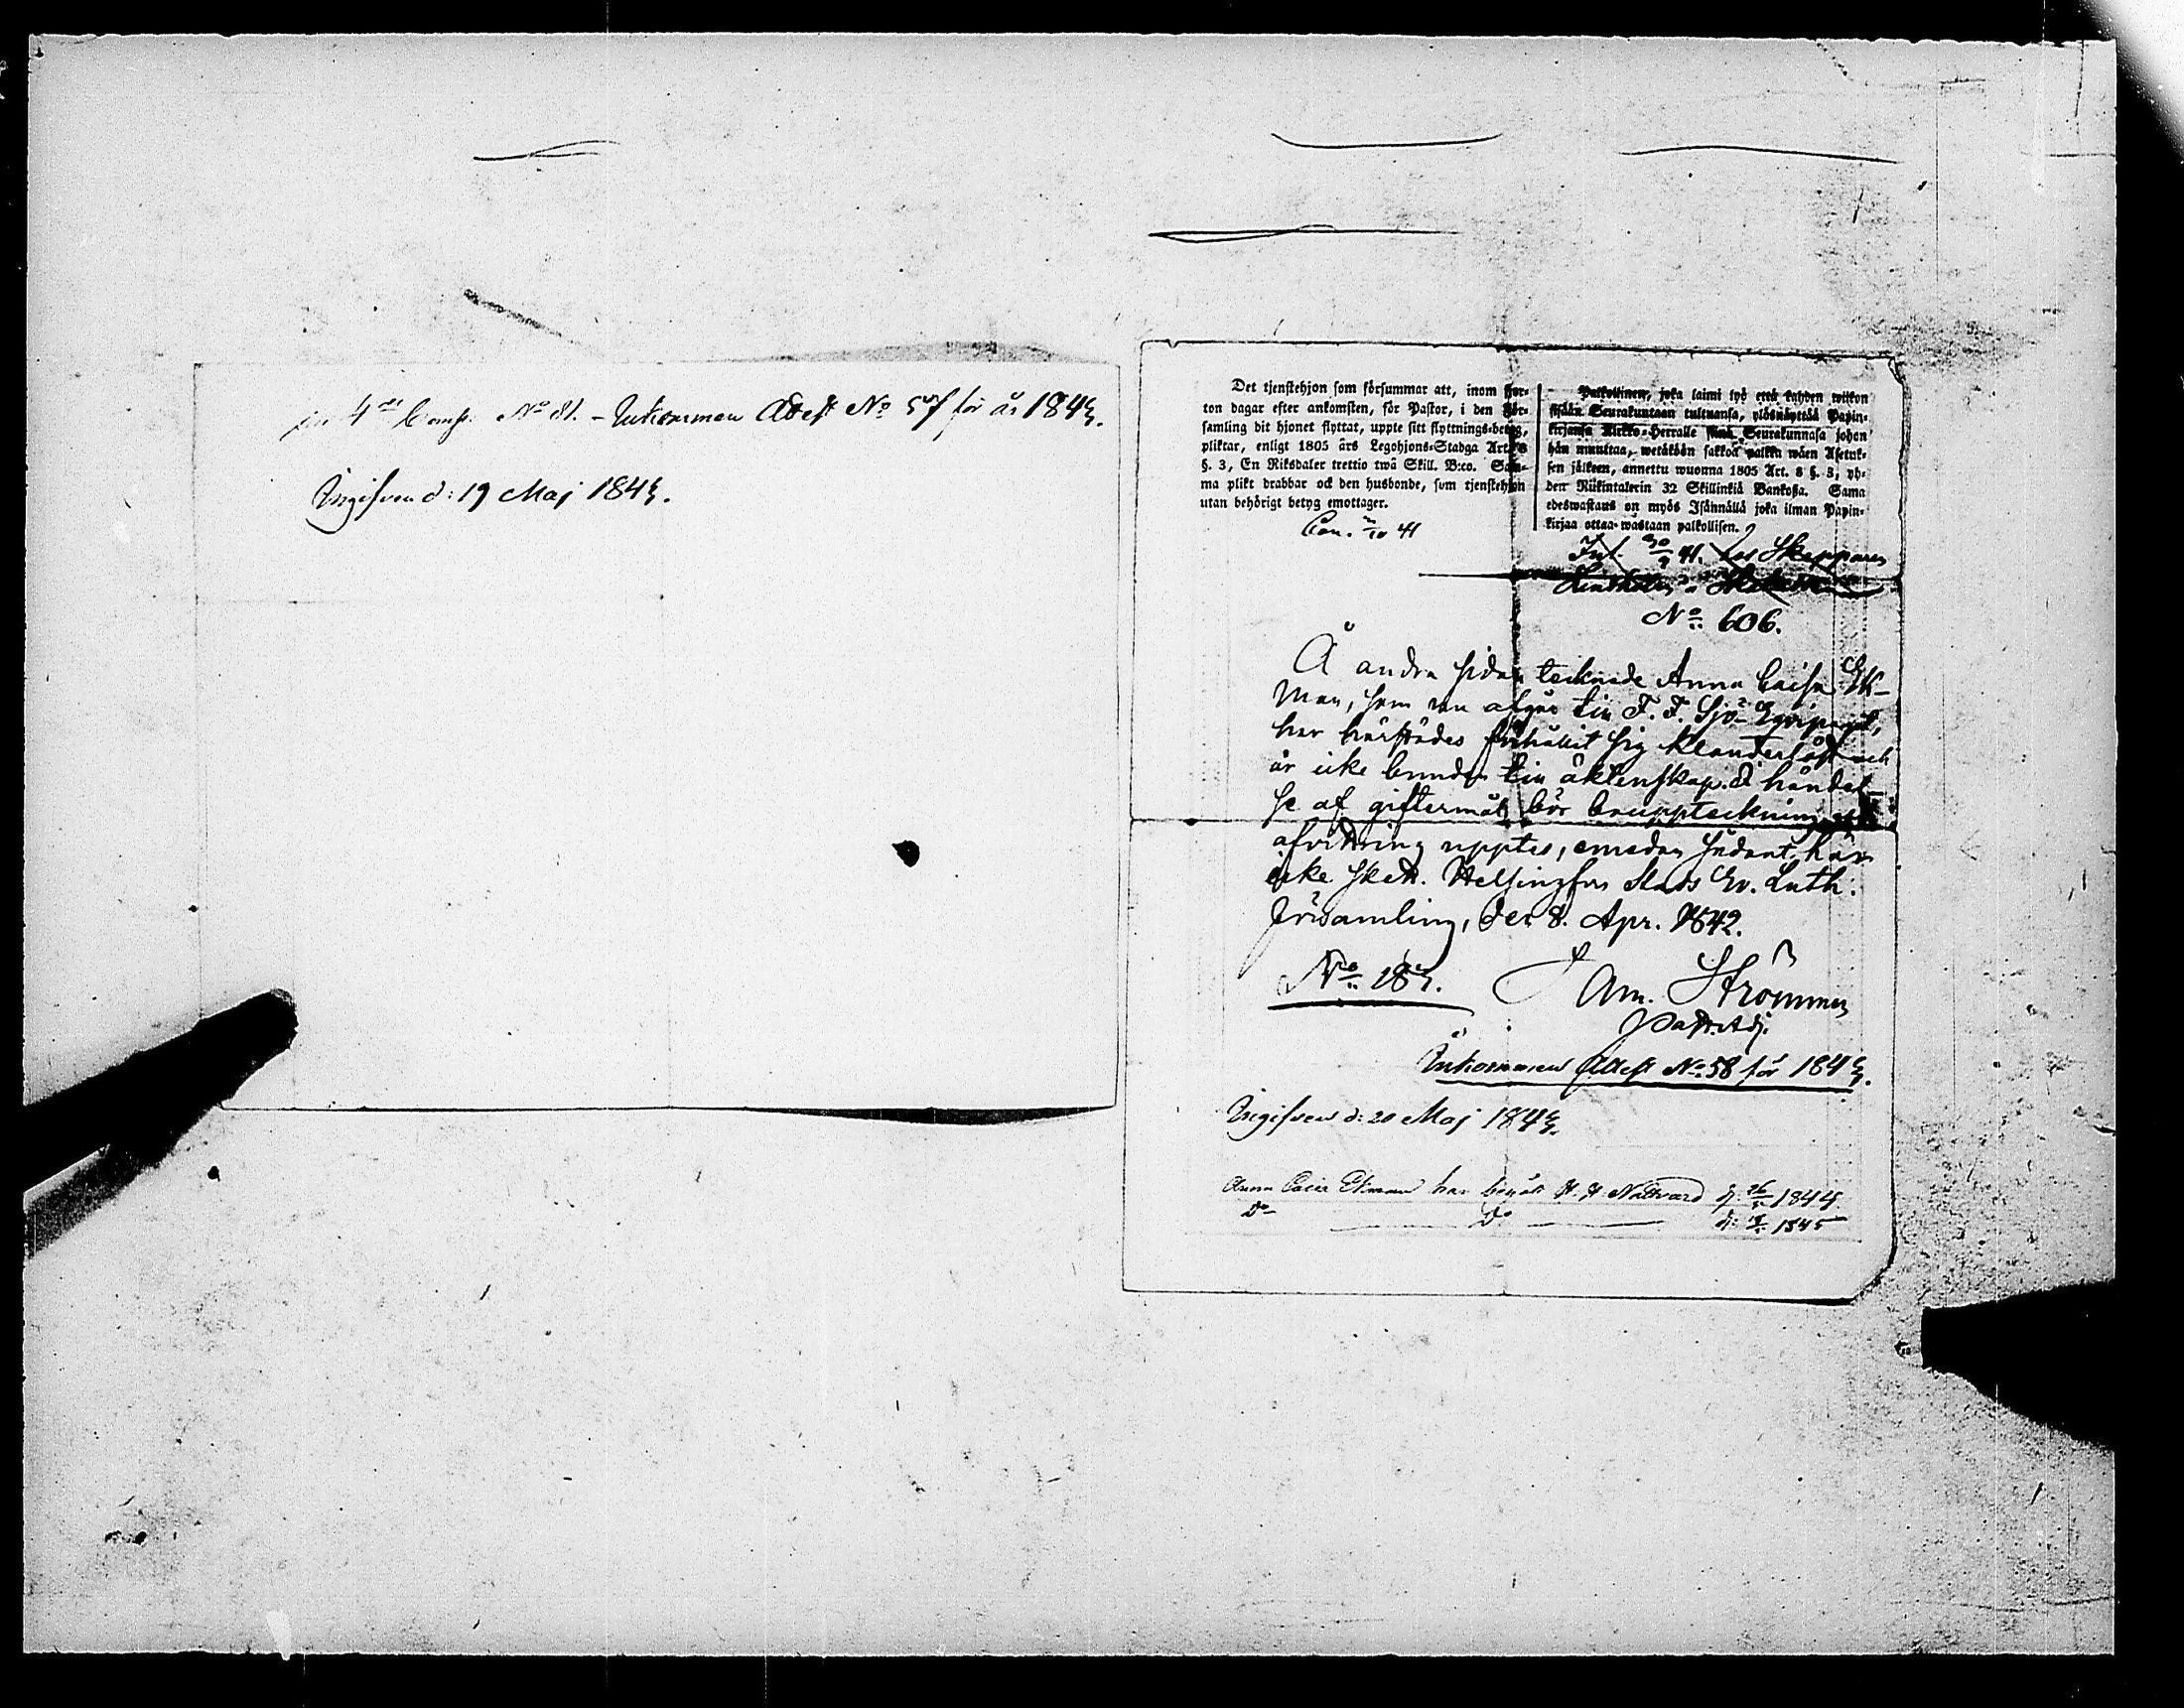 4de Comp. No 81. - Inkommen Attest No 57 för år 1843.
Ingifven d: 19 Maj 1843.
Det tjenstehjon som försummar att, inom fjor-
ton dagar efter ankomsten, för Pastor, i den För-
samling dit hjonet flyttat, uppte sitt flyttnings-betyg,
pliktar, enligt 1805 års Legohjons-Stadga Art. 8
§. 3, En Riksdaler trettio twå Skill. B:co. Sam-
ma plikt drabbar ock den husbonde, som tjenstehjon
utan behörigt betyg emottager.
Palkollinen, joka laimi lyö että kahden wiikon
sisään Seurakuntaan tultuansa, ylösnäyttää Papin-
kirjansa Kirkko-Herralle siinä Seurakunnasa johon
hän muuttaa, wetäköön sakkoa palkka wäen Asetuk-
sen jälkeen, annettu wuonna 1805 Art. 8 §. 3, yh-
den Riikintalerin 32 Skillinkiä Bankosa. Sama
edeswastaus on myös Isännällä joka ilman Papin-
kirjaa ottaa wastaan palkollisen.
Int. 30/9 41. hos Skepparen
No 606.
Å andra sidan tecknade Anna Caisa Ek-
man, som nu afgår till F. F. Sjö-Equipaget,
har härstädes förhållit sig klanderlöst och
är icke bunden till äktenskap. I händel-
se af giftermål bör bouppteckning eller
afvittring upptes, emedan sådant här
icke skett. Helsingfors Stads Ev. Luth.
församling, den 8. Apr. 1842.
No 183.
Am. Strömmer
Past. Adj.
Inkommen Attest No 58 för 1843.
Ingifven d: 20 Maj 1843.
Anna Caisa Ekman har begått H. H. Nattvard d: 26/ 1844
Do Do d: 1845